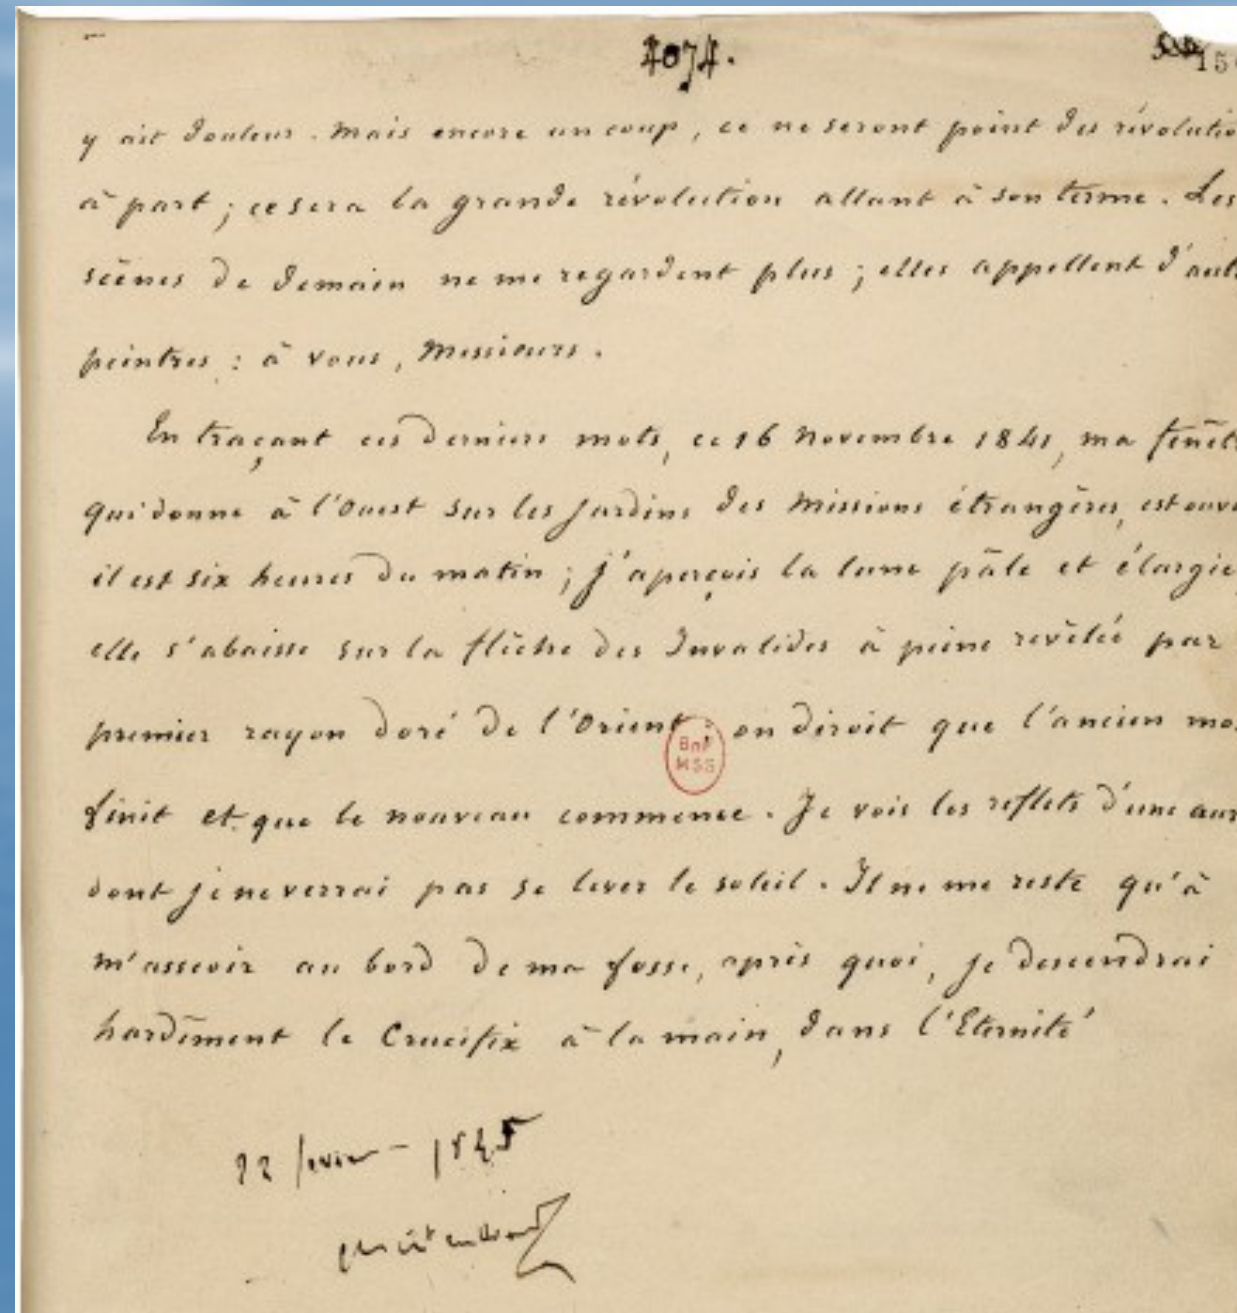 4074.
15
y ait douleur. Mais encore un coup, ce ne seront point des révolutio
à part ; ce sera la grande révolution allant à son terme. Les
scènes de demain ne me regardent plus ; elles appellent d'aut
peintres : à vous, Messieurs.
En traçant ces derniers mots, ce 16 Novembre 1841, ma fenêt
qui donne à l'Ouest sur les jardins des Missions étrangères, est ouve
il est six heures du matin ; j'aperçois la lune pâle et élargie,
elle s'abaisse sur la flèche des Invalides à peine révélée par
premier rayon doré de l'Orient : on diroit que l'ancien mo
BnF
MSS
finit et que le nouveau commence. Je vois les reflets d'une aur
dont je ne verrai pas se lever le soleil. Il ne me reste qu'à
m'asseoir au bord de ma fosse, après quoi, je descendrai
hardiment le Crucifix à la main, dans l'Eternité
22 février - 1845